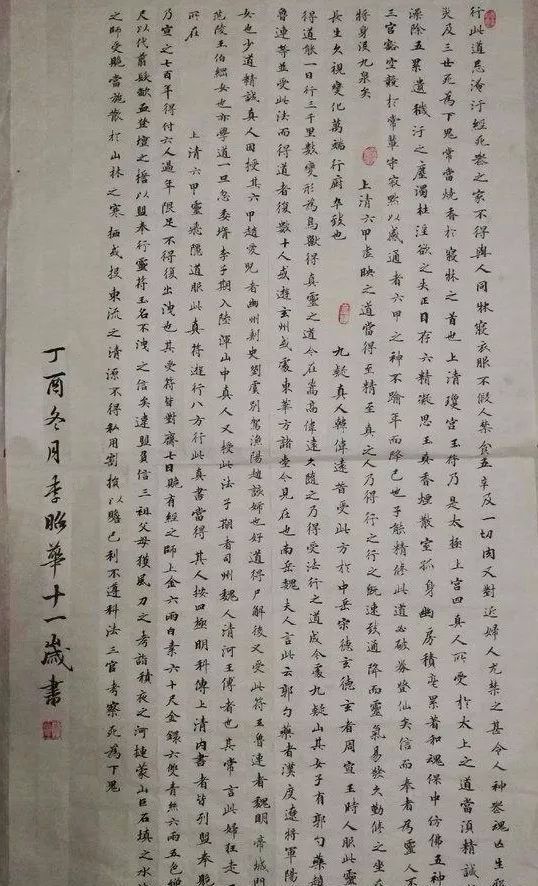 行此道忌淹汙經死喪之家不得與人同牀寢衣服不假人禁食五辛及一切肉又對近婦人尤禁之甚令人神喪魂亡生邪
災及三世死為下鬼常當燒香於寢牀之首也上清瓊宮玉符乃是太極上宮四真人所受於太上之道當須精誠
潔除五累遺穢汙之塵濁杜淫欲之失正目存六精凝思玉真香煙散室孤身幽房積毫累著和魂保中仿佛五神
三官豁空競於常輩中寂默以感通者六甲之神不踰年而降己也子能精修此道必破券登仙矣信而奉者為靈人不
將身沒九泉矣 上清六甲虛映之道當得至精至真之人乃得行之行之既速致通降而靈氣易發久勤修之坐在
長生久視變化萬端行廚卒致也 九疑真人韓偉遠昔受此方於中岳宋德玄德玄者周宣王時人服此靈
得道能一日行三千里數變形為鳥獸得真靈之道今在嵩高偉遠久隨之乃得受法行之道成今處九疑山其女子有郭勺藥趙
魯連等並受此法而得道者復數十人或遊玄州或處東華方諸臺今見在也南岳魏夫人言此云郭勺藥者漢度遼將軍陽
女也少道精誠真人因授其六甲趙愛兒者幽州刺史劉虞別駕漁陽趙該婦也好道得尸解後又受此符王魯連者魏明帝城門
範陵王伯綱女也亦學道一旦忽委壻李子期入陸渾山中真人又授此法子期者司州魏人清河王傳者也其常言此婦狂走一
所在 上清六甲靈飛隱道服此真符遊行八方行此真書當得其人按四極明科傳上清內書者皆列盟奉賝
乃宣之七百年得付六人過年限足不得復出洩也其受符皆對齋七日賝有經之師上金六兩白素六十尺金鐶六雙青絲六兩五色繒
尺以代翦歃血登壇之誓以盟奉行靈符玉名不洩之信矣違盟負信三祖父母獲風刀之考詣積夜之河揵蒙山巨石填之水
之師受賝當施散於山林之寒栖或投東流之清源不得私用割損以贍己利不遵科法三官考察死為下鬼
丁酉冬月李昭華十一歲書